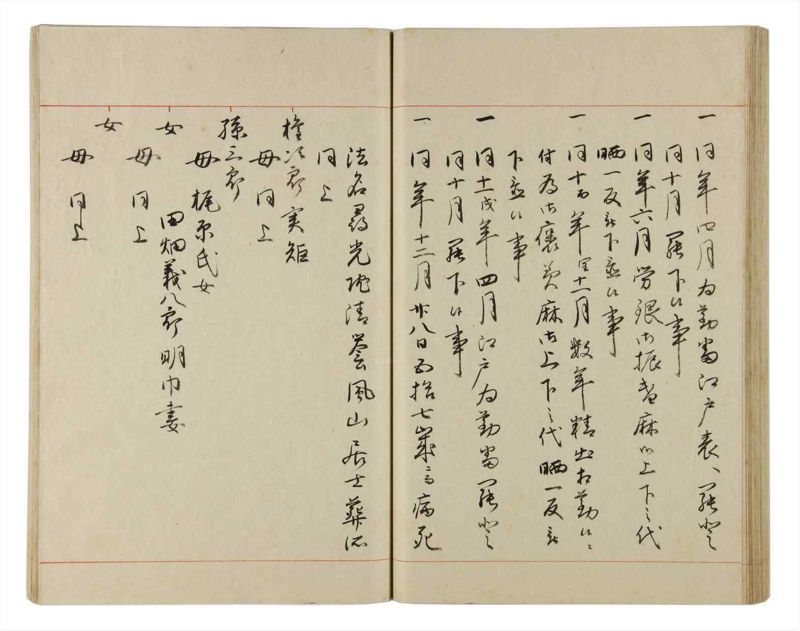 一同年四月為勤番江戸表へ罷登
同十月罷下候事
一同年六月労銀御振替麻御上下之代
晒一反被下置候事
一同十 年 十一月数年精出相勤候ニ
付為御褒美麻御上下之代晒一反被
下置候事
一同十一戌年四月江戸為勤番罷登
同十月罷下候事
一同年十二月廿八日五拾七歳ニ而病死
法名尋光院清誉風山居士葬所
同上
権次郎実矩
母同上
孫三郎
母梶原氏女
女
田畑義八郎明巾妻
母同上
女
母同上